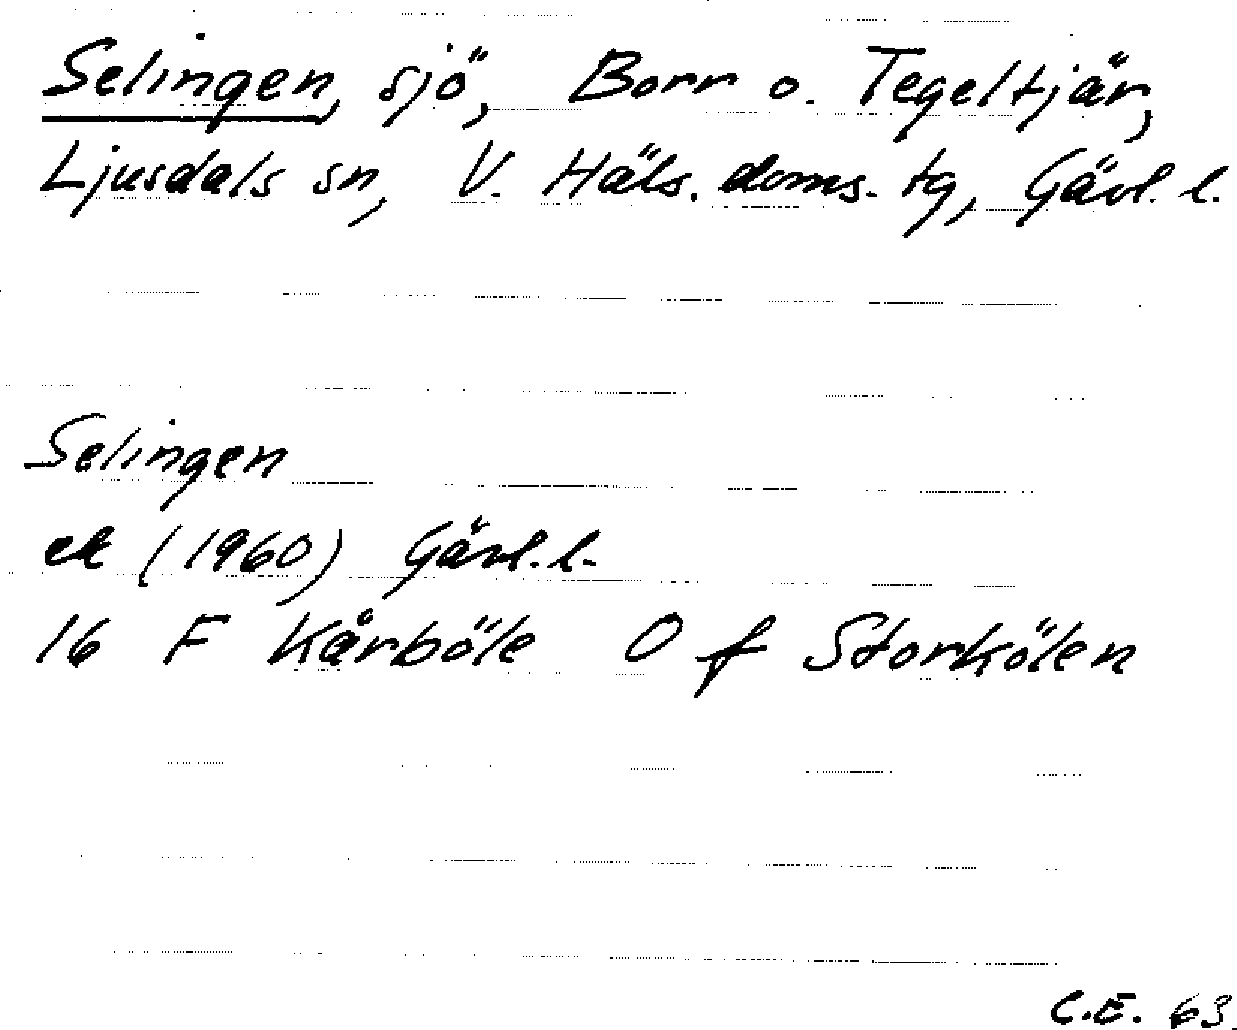 Selingen, sjö, Borr o. Tegeltjär,
Ljusdals sn, V. Häls. doms. tg, Gävl. l.
Selingen
ek (1960) Gävl. l.
16 F Kårböle O f Storkölen
C.E. 63.